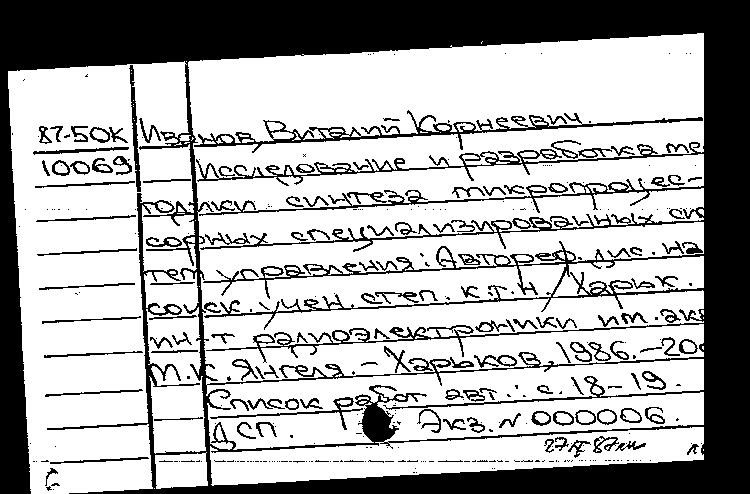 87-5ОК Иванов, Виталий Корнеевич.
10069 Исследование и разработка ме
тодики синтеза микропроцес-
сорных специализированных си
тем управления: Автореф. дис. на
соиск. учен. степ. к.т.н. / Харьк.
ин-т радиоэлектроники им. ака
М.К. Янгеля. - Харьков, 1986. - 20с
Список работ авт.: с. 18-19.
ДСП. Экз. N 000006.